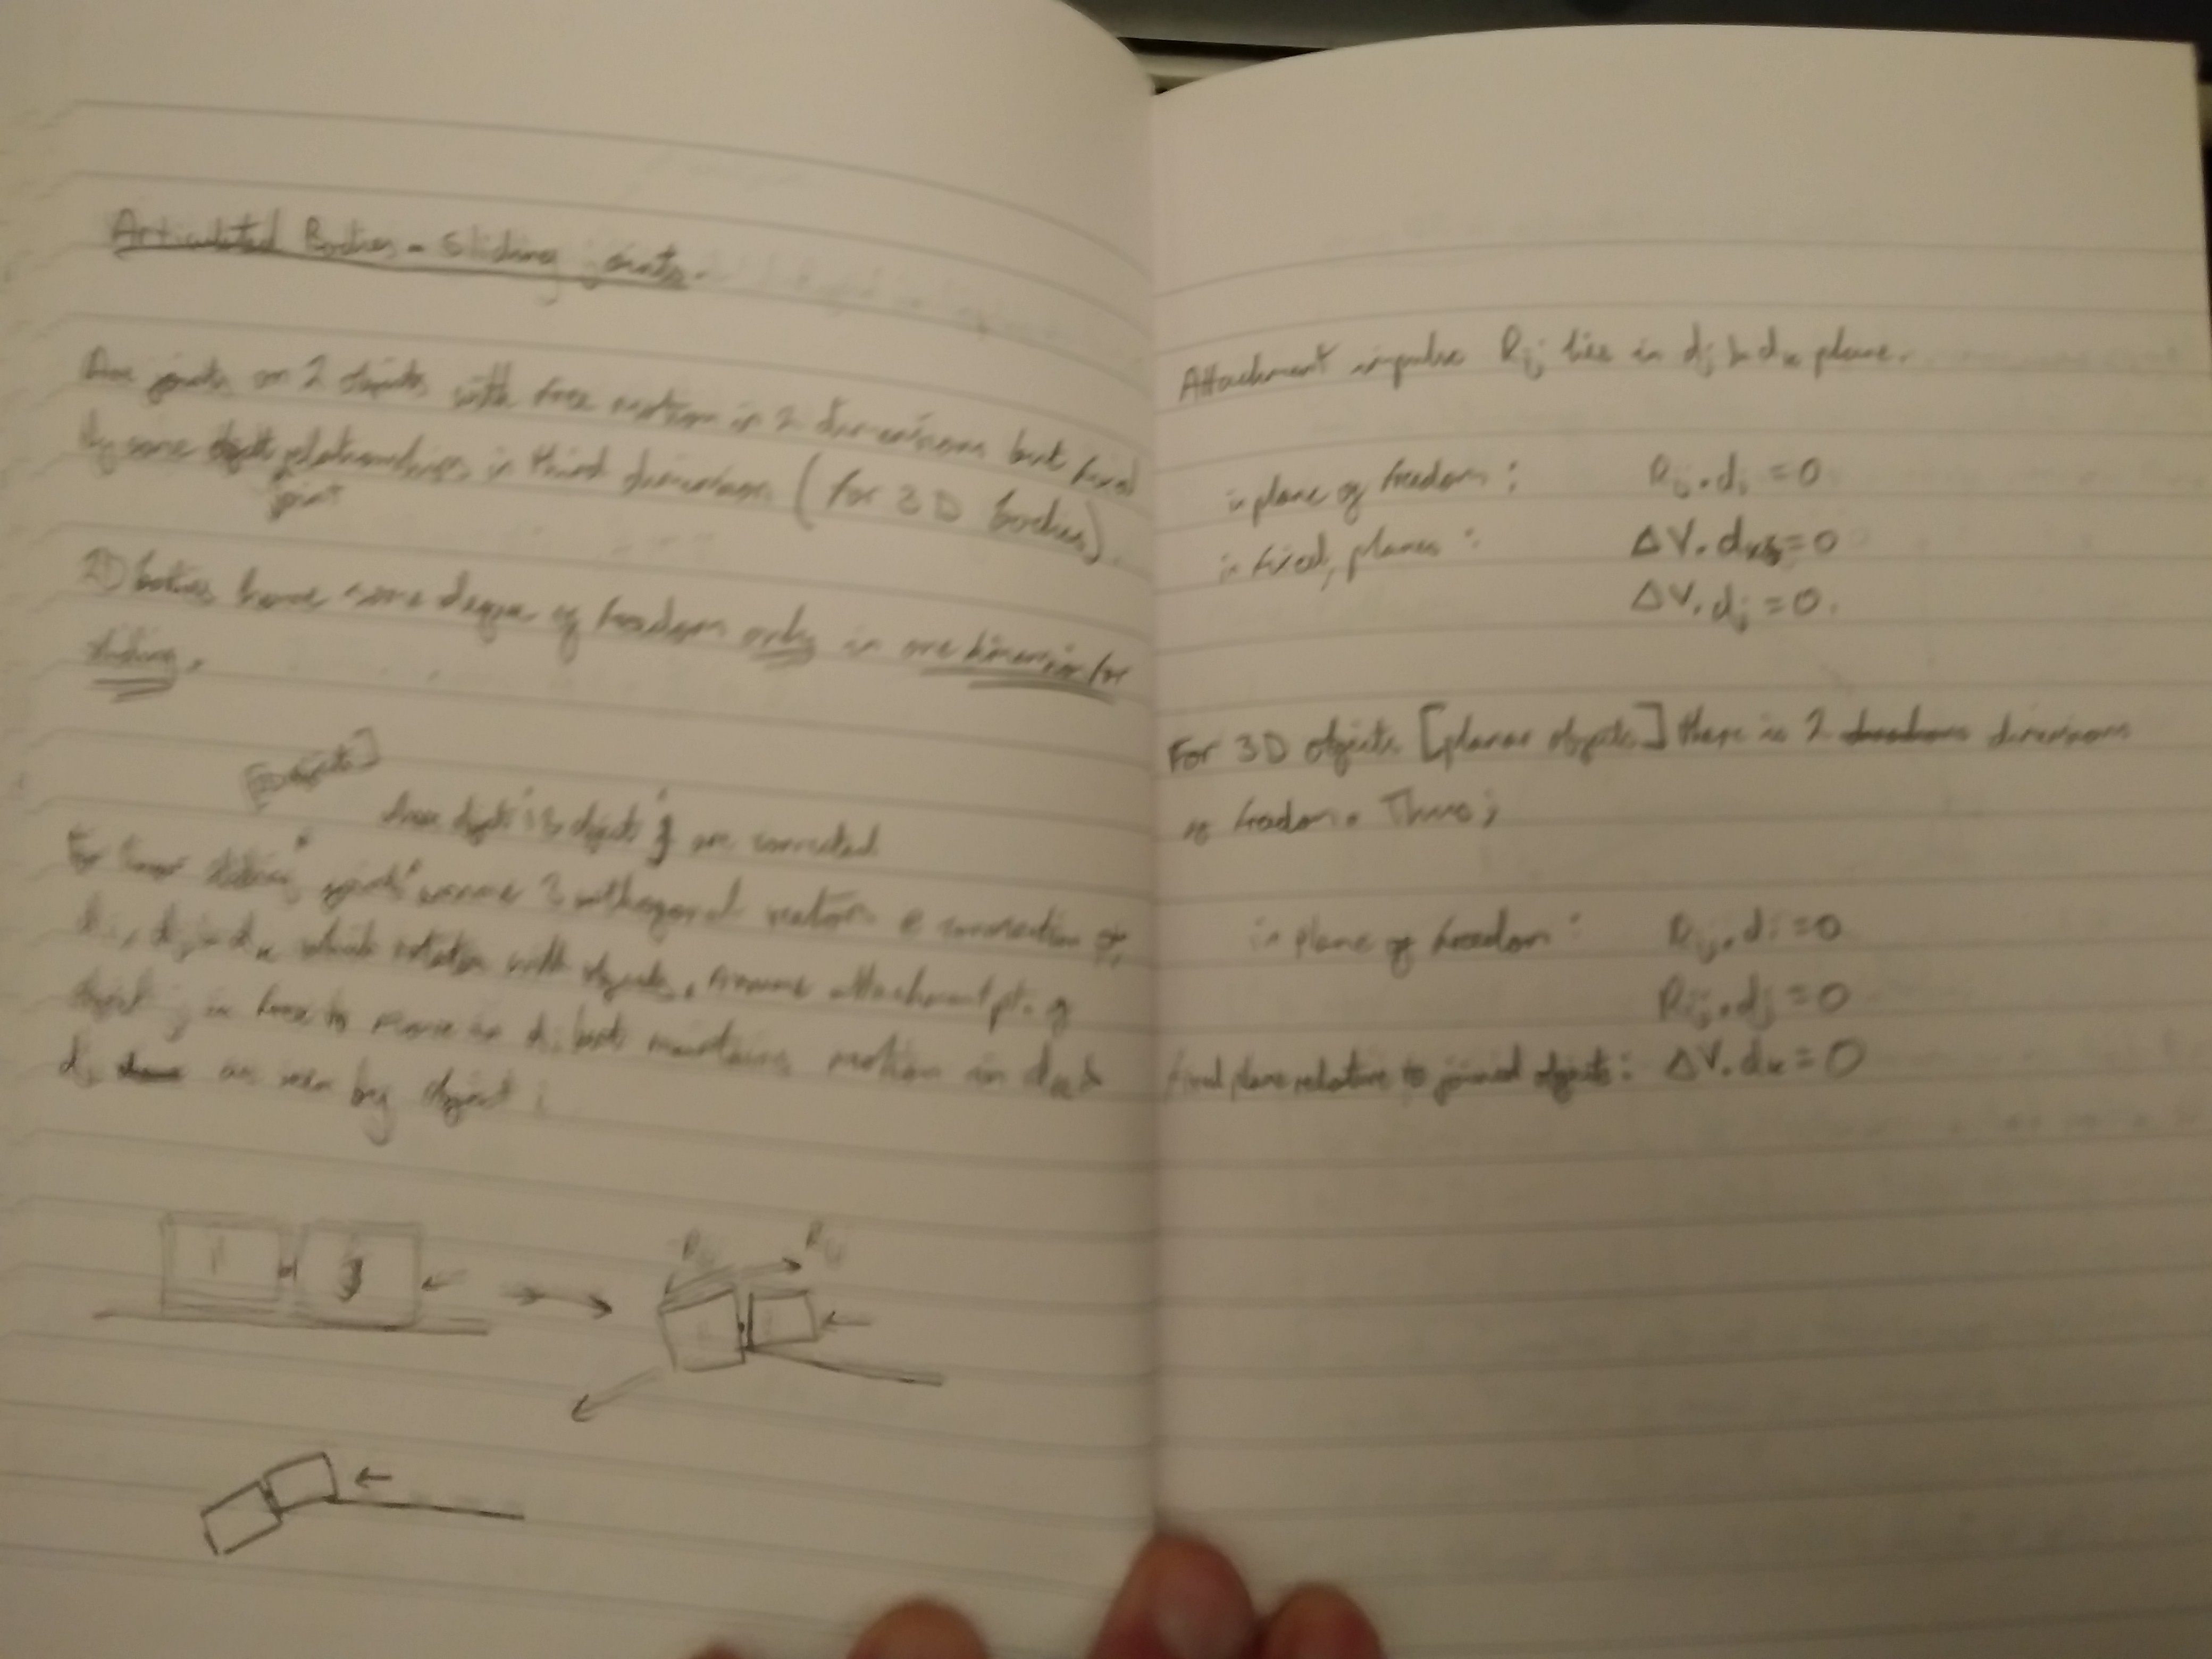 Articulated Bodies - Sliding joints.
Are joints on 2 objects with free motion in 2 dimensions but fixed
by some relationships in third dimension (for 3D bodies).
joint
2D bodies have some degree of freedom only in one dimension for
sliding.
[3D objects]
where object i & object j are connected
For linear sliding joints assume 3 orthogonal vectors @ connection pt,
di, dj & dk which rotates with objects, assume attachment pt. of
object j is free to move in di but maintains motion in dk &
dj as seen by object i
i j
Rij Rij
Attachment impulse Rij lies in dj & dk plane.
in plane of freedom: Rij . di = 0
in fixed, planes: ΔV. dk = 0
ΔV. dj = 0.
For 3D objects [planar objects] there is 2 dimensions
of freedom. Thus;
in plane of freedom: Rij . di = 0
Rij . dj = 0
fixed plane relative to joined objects: ΔV. dk = 0